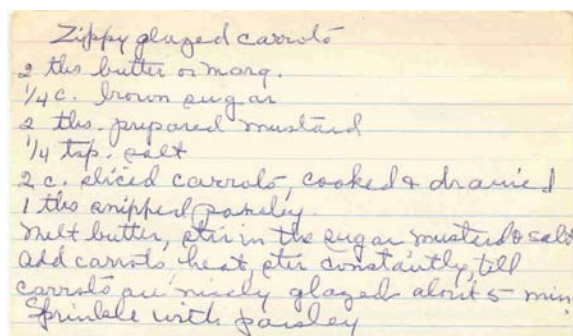 Zippy glazed carrots
2 tbs butter or marg.
1/4 c. brown sugar
2 tbs. prepared mustard
1/4 tsp. salt
2 c. sliced carrots, cooked & drained
1 tbs snipped parsley.
Melt butter, stir in the sugar mustard & salt
add carrots heat, stir constantly, till
carrots are nicely glazed about 5 min.
Sprinkle with parsley